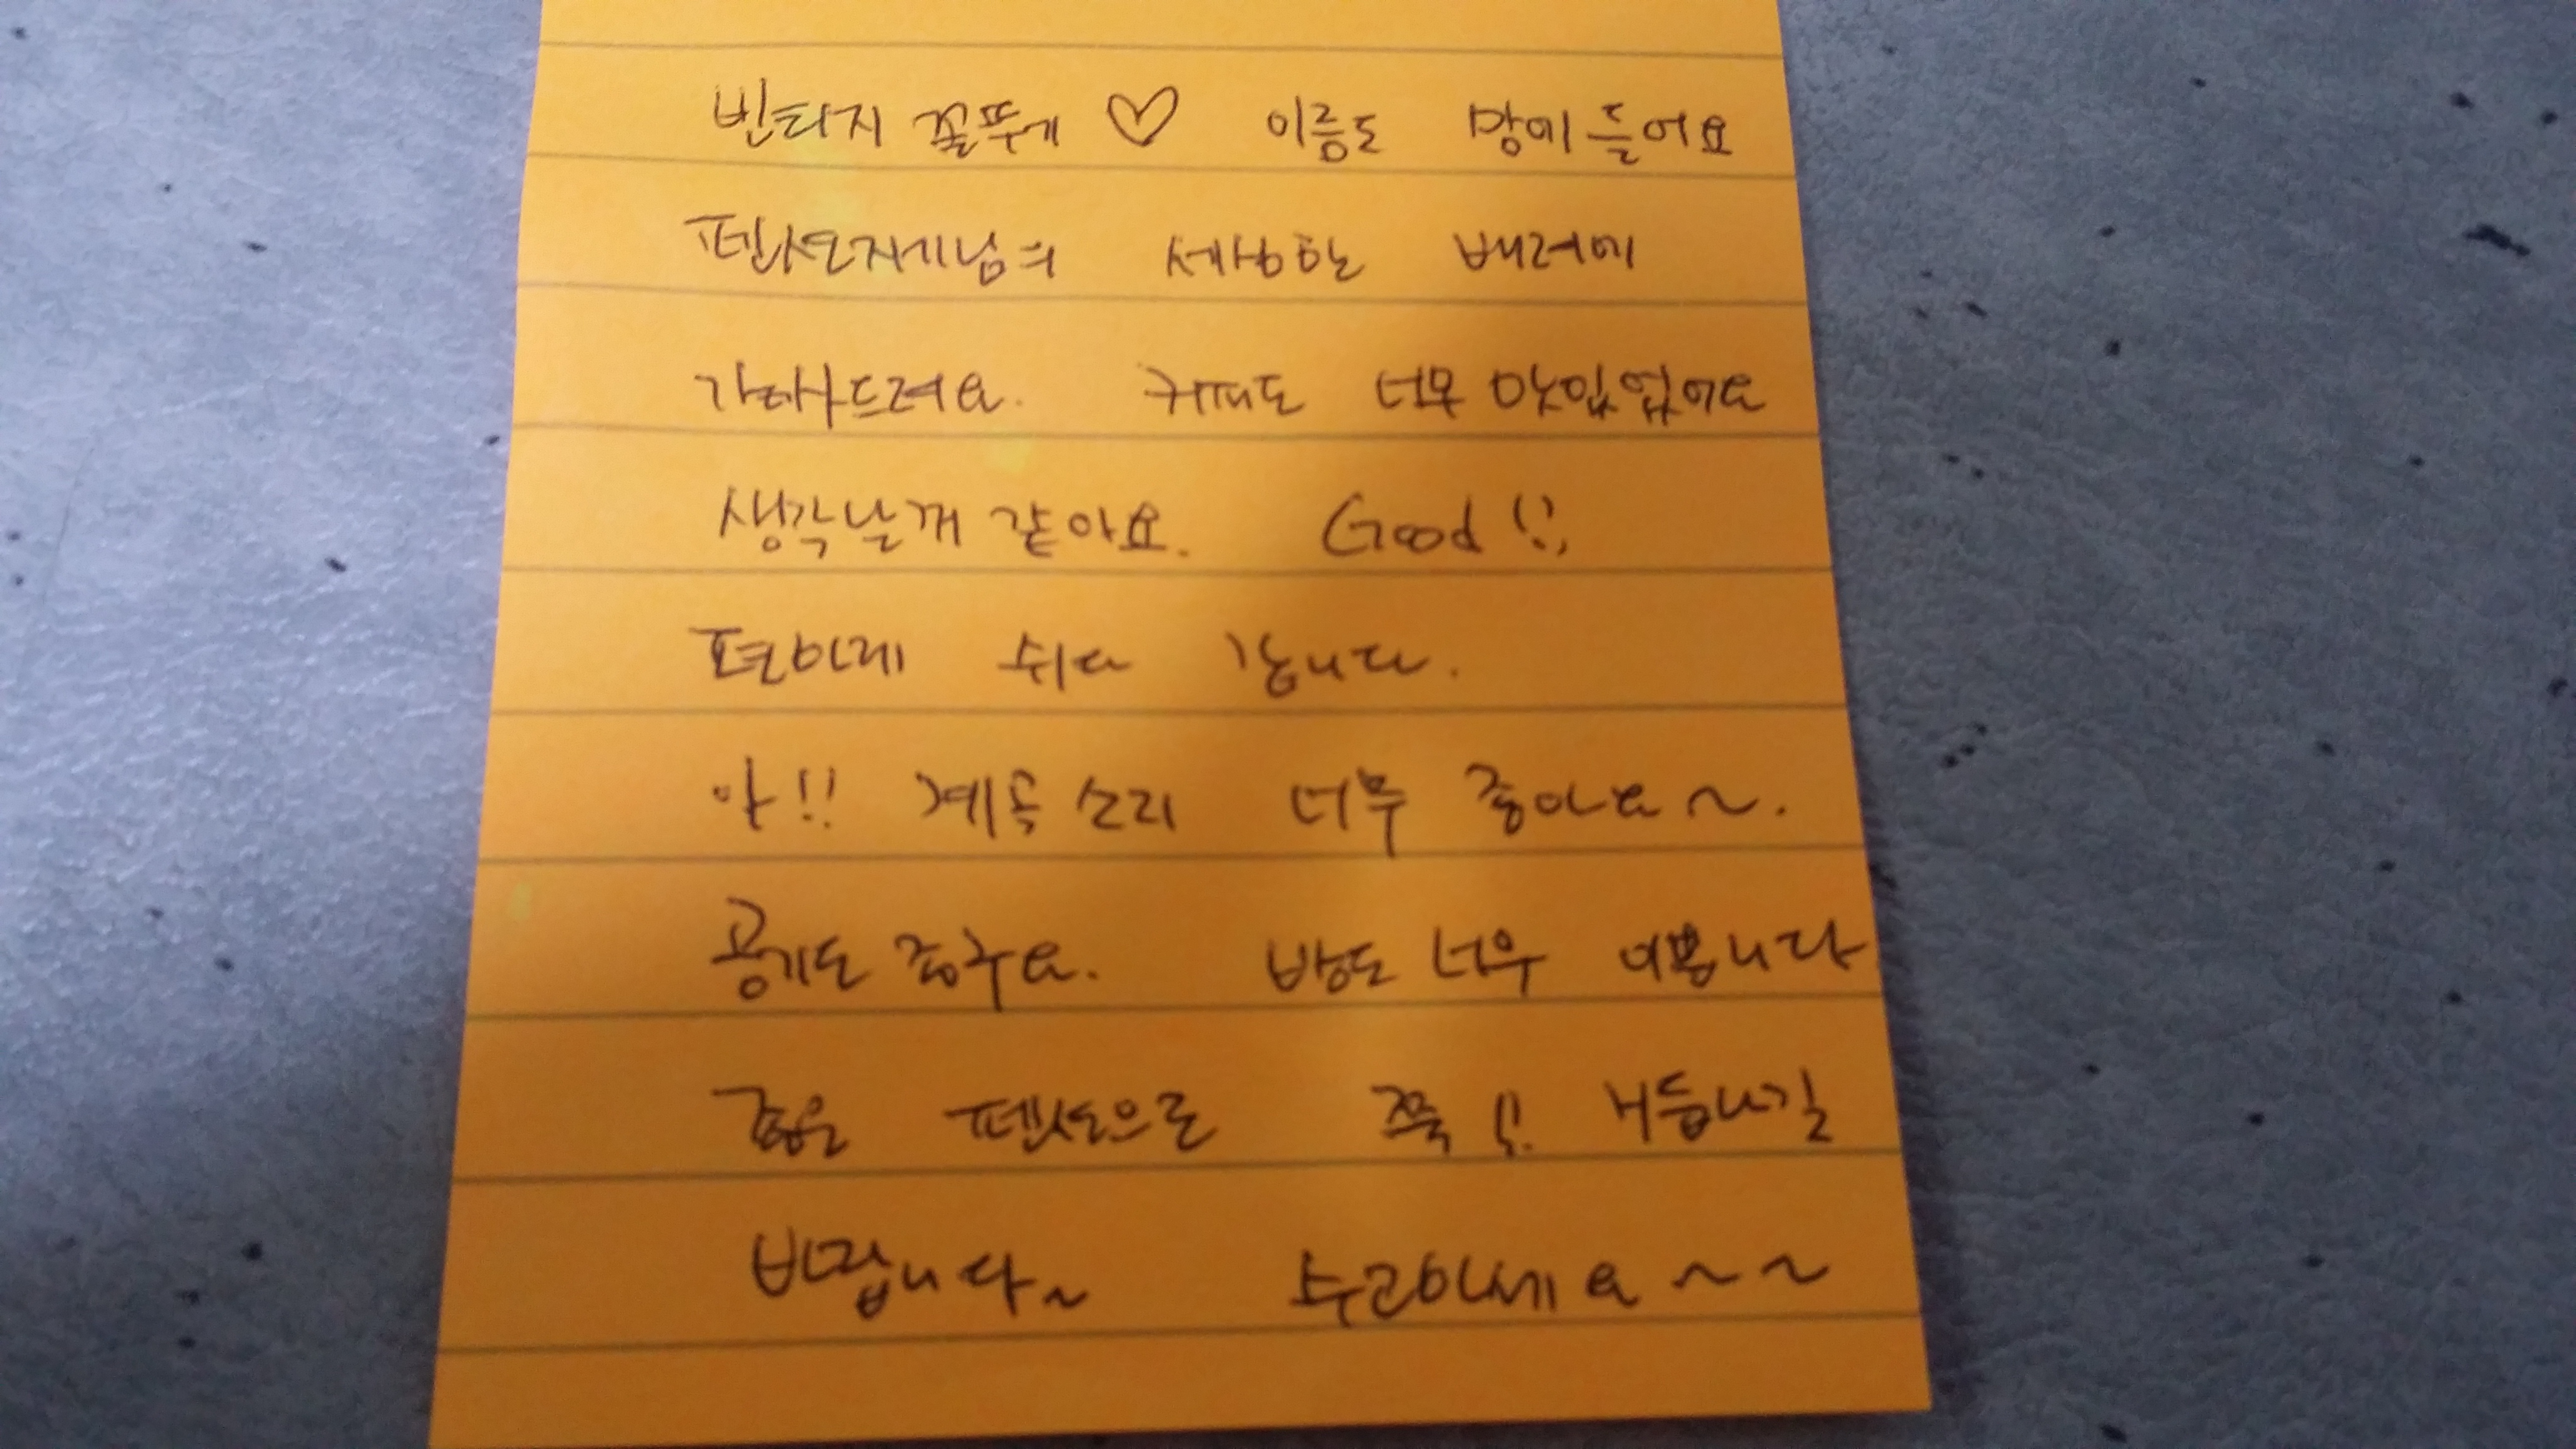 빈티지 꼴뚜게 ♡ 이름도 맘에 들어요
펜션지기님의 세심한 배려에
감사드려요. 커피도 너무 맛있었어요
생각날거 같아요. Good!!
편하게 쉬다 갑니다.
아!! 계곡 소리 너무 좋아요~.
공기도 좋구요. 방도 너무 이쁩니다
좋은 펜션으로 쭉!! 거듭나길
바랍니다~ 수고하세요~~